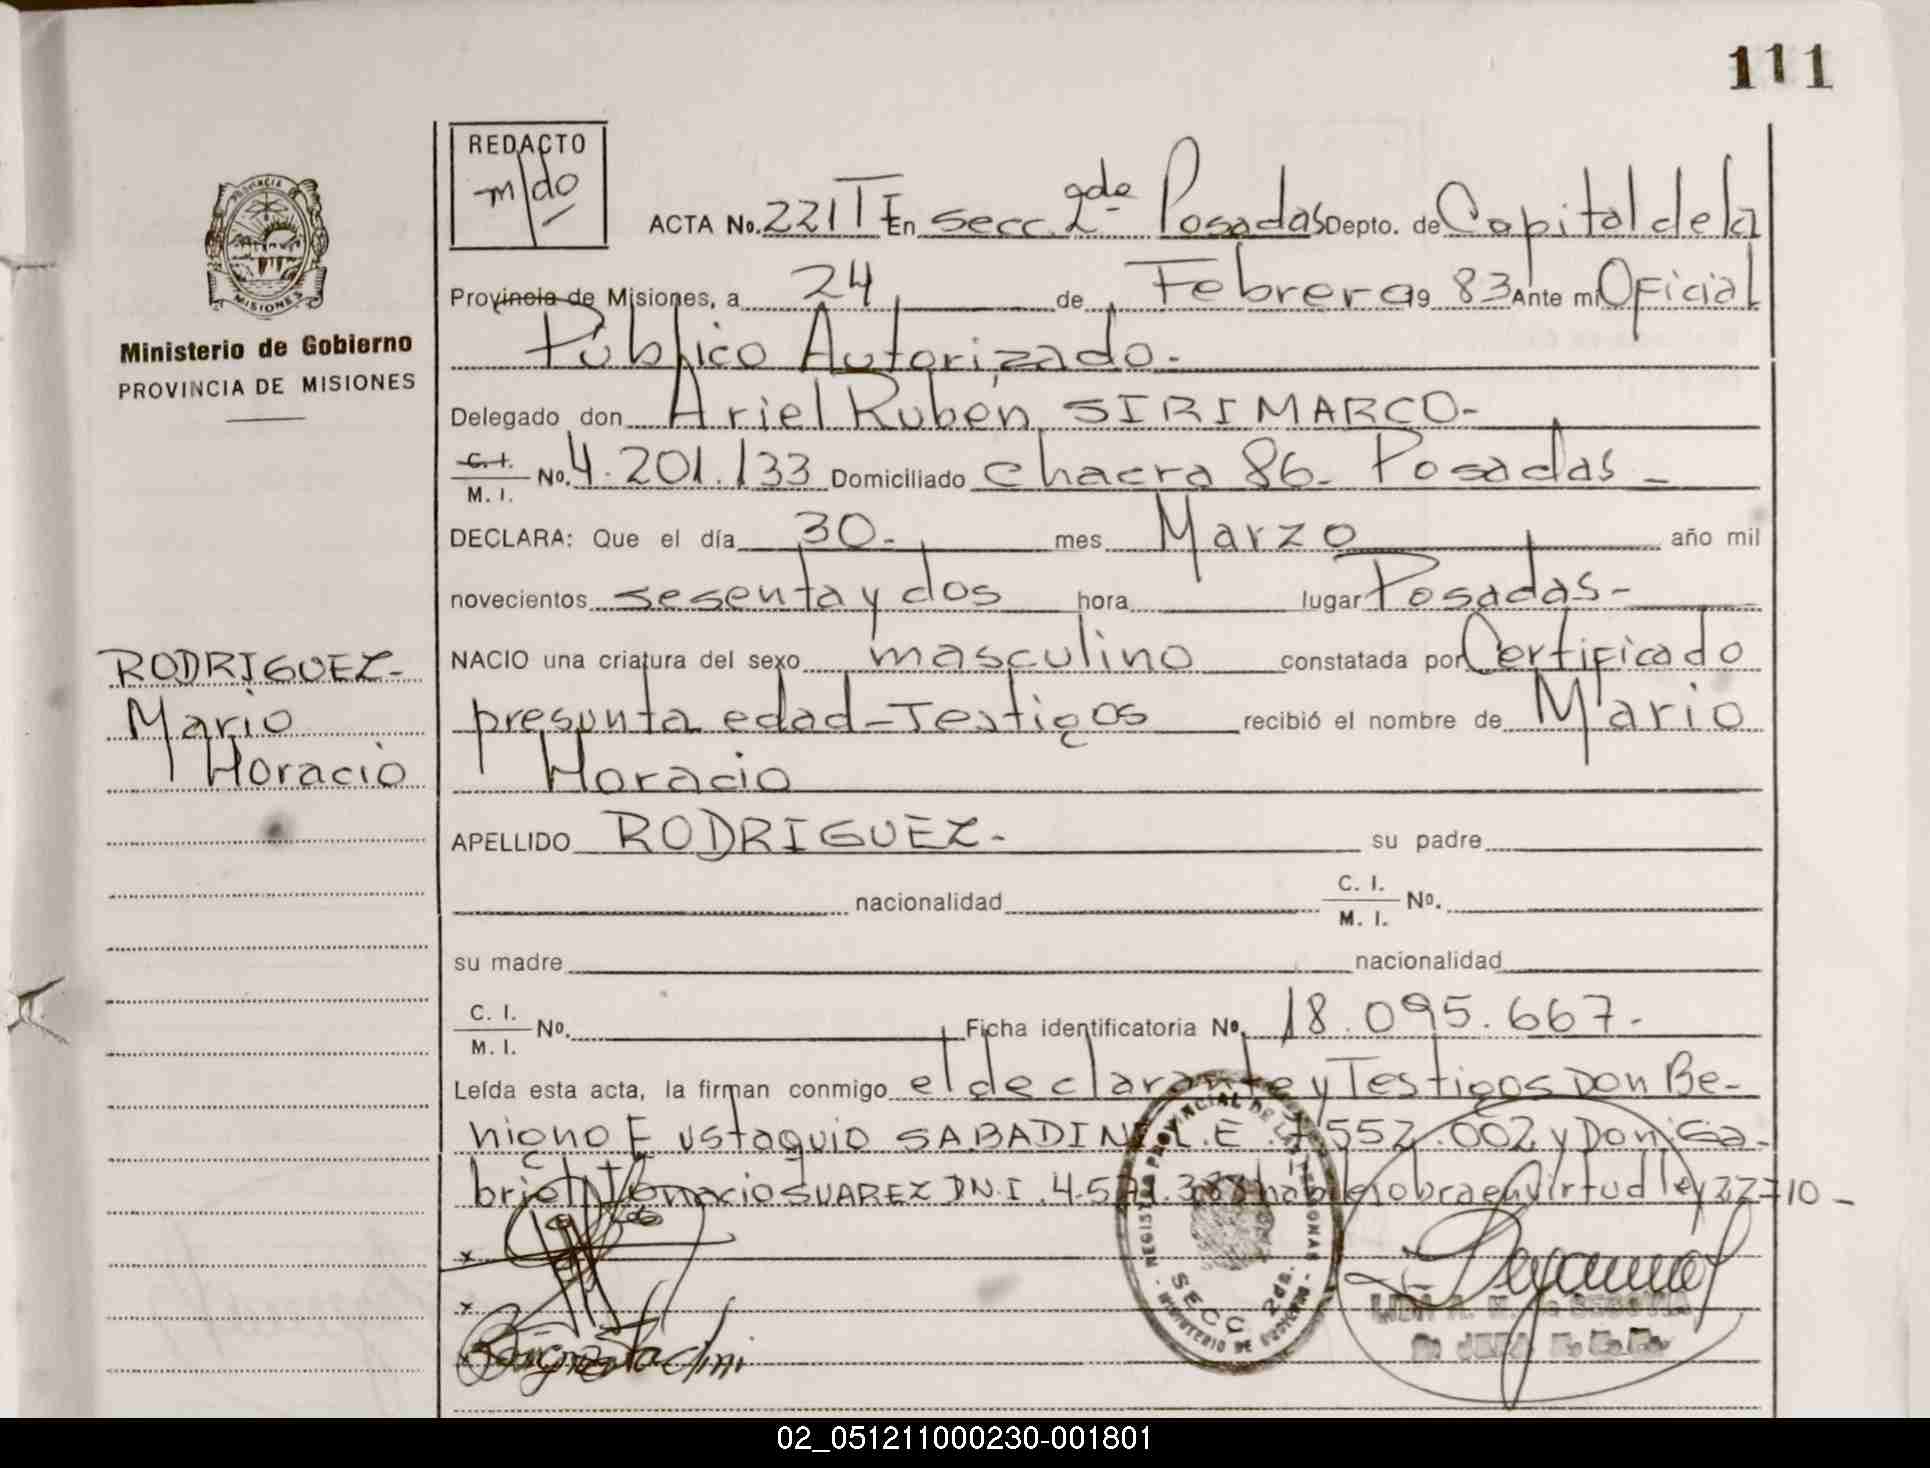 111
REDACTO
m/do
ACTA No. 221 T I En secc. 2da Posadas Depto. de Capital de la
Provincia de Misiones, a 24 de Febrero 19 83 Ante mi Oficial
Público Autorizado.-
Delegado don Ariel Rubén SIRIMARCO-
C. I. / M. I. No. 4.201.133 Domiciliado chacra 86- Posadas-
DECLARA: Que el día 30- mes Marzo año mil
novecientos sesenta y dos hora lugar Posadas-
NACIO una criatura del sexo masculino constatada por Certificado
presunta edad-Testigos recibió el nombre de Mario
Horacio
APELLIDO RODRIGUEZ- su padre
nacionalidad C. I. / M. I. No.
su madre nacionalidad
C. I. / M. I. No. Ficha identificatoria No. 18.095.667-
Leída esta acta, la firman conmigo el declarante y Testigos Don Be-
nigno Eustaquio SABADINI L.E. 7.552.002 y Don Ga-
briel Ignacio SUAREZ DNI. 4.571.388 habiles obra en Virtud ley 22710-
x
x
x
REGISTRO PROVINCIAL DE LAS PERSONAS
SECC 2da.
MINISTERIO DE GOBIERNO
PROVINCIA
MISIONES
Ministerio de Gobierno
PROVINCIA DE MISIONES
RODRIGUEZ-
Mario
Horacio
02_051211000230-001801